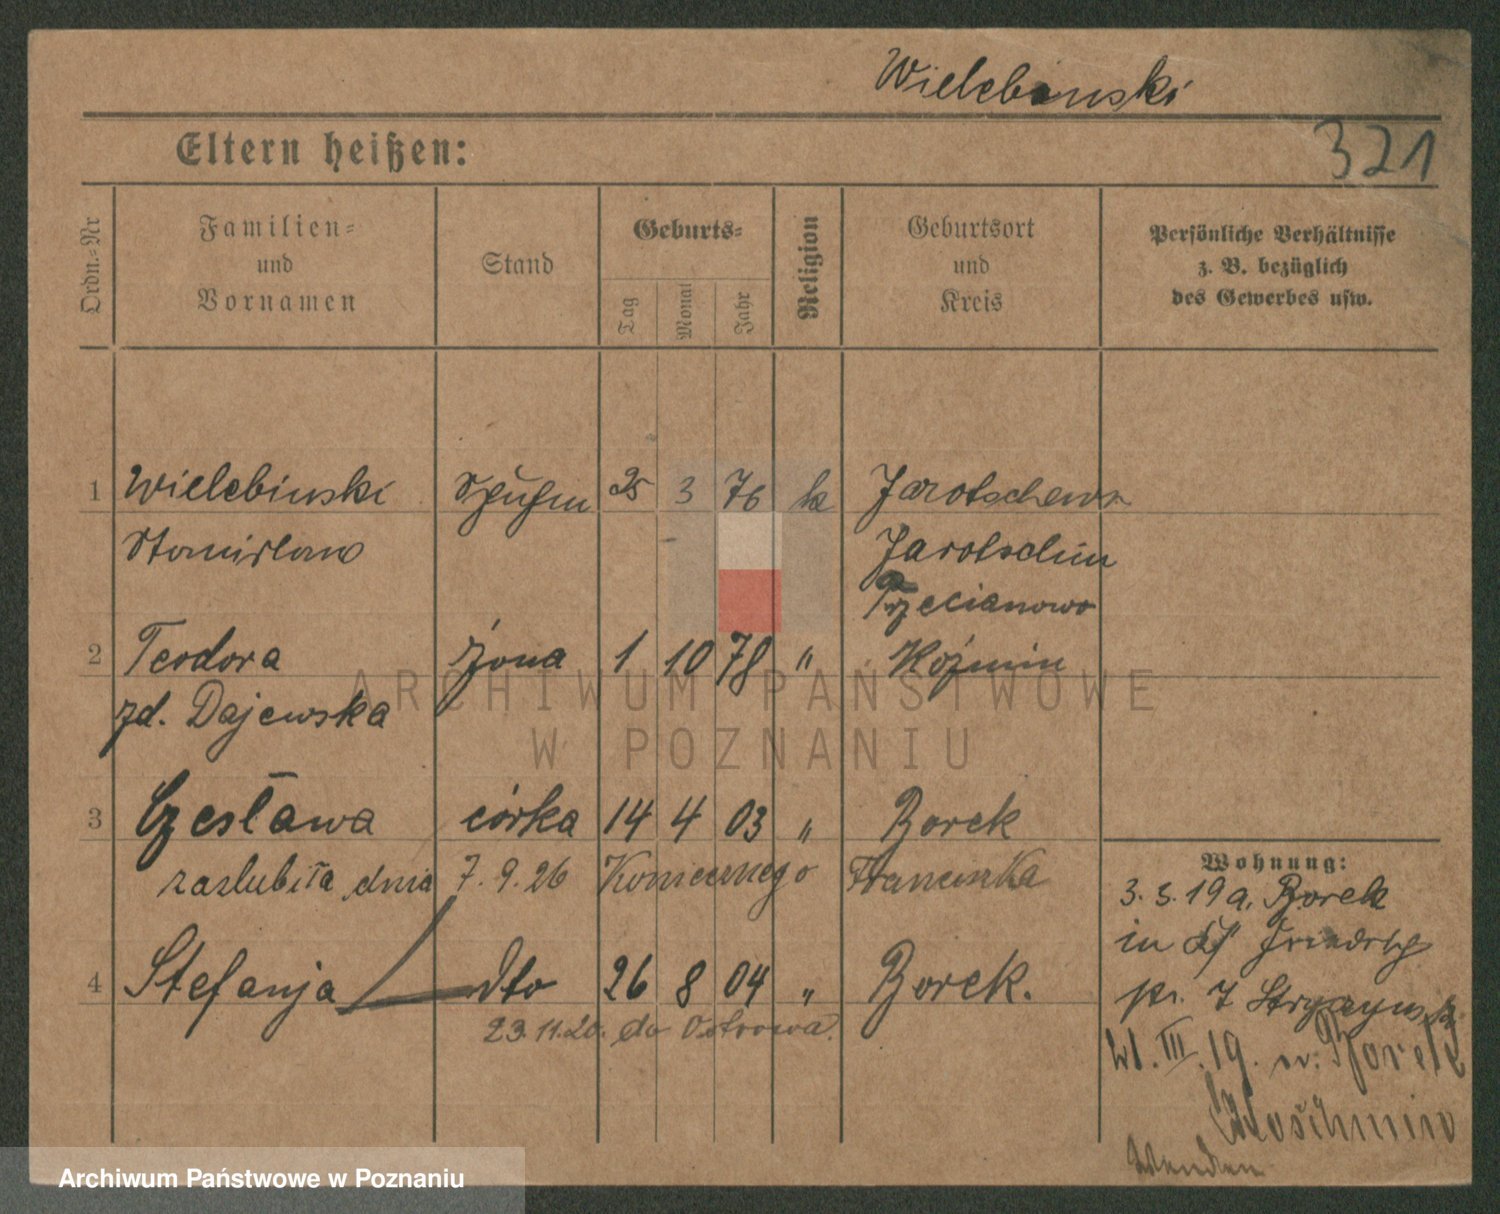 Wielebinski
321
Eltern heißen:
Ordn.-Nr
Familien-
und
Vornamen
Stand
Geburts-
Tag
Monat
Jahr
Religion
Geburtsort
und
Kreis
Persönliche Verhältnisse
z. B. bezüglich
des Gewerbes usw.
1 Wielebinski 25 3 76 k Jarotschewo
Stanislaw Jarotschin
Trzecianowo
2 Teodora żona 1 10 78 " Koźmin
zd. Dajewska
3 Czesława córka 14 4 03 " Borek
zaslubiła dnia 7. 9. 26 Koniecznego Franciszka
4 Stefanja dto 26 8 04 " Borek.
23. 11. 20. do Ostrowa.
Wohnung:
3. 3. 19 a. Borek
in
pr. 7
21. III. 19. Borek
Koschmin
ARCHIWUM PAŃSTWOWE
W POZNANIU
Archiwum Państwowe w Poznaniu